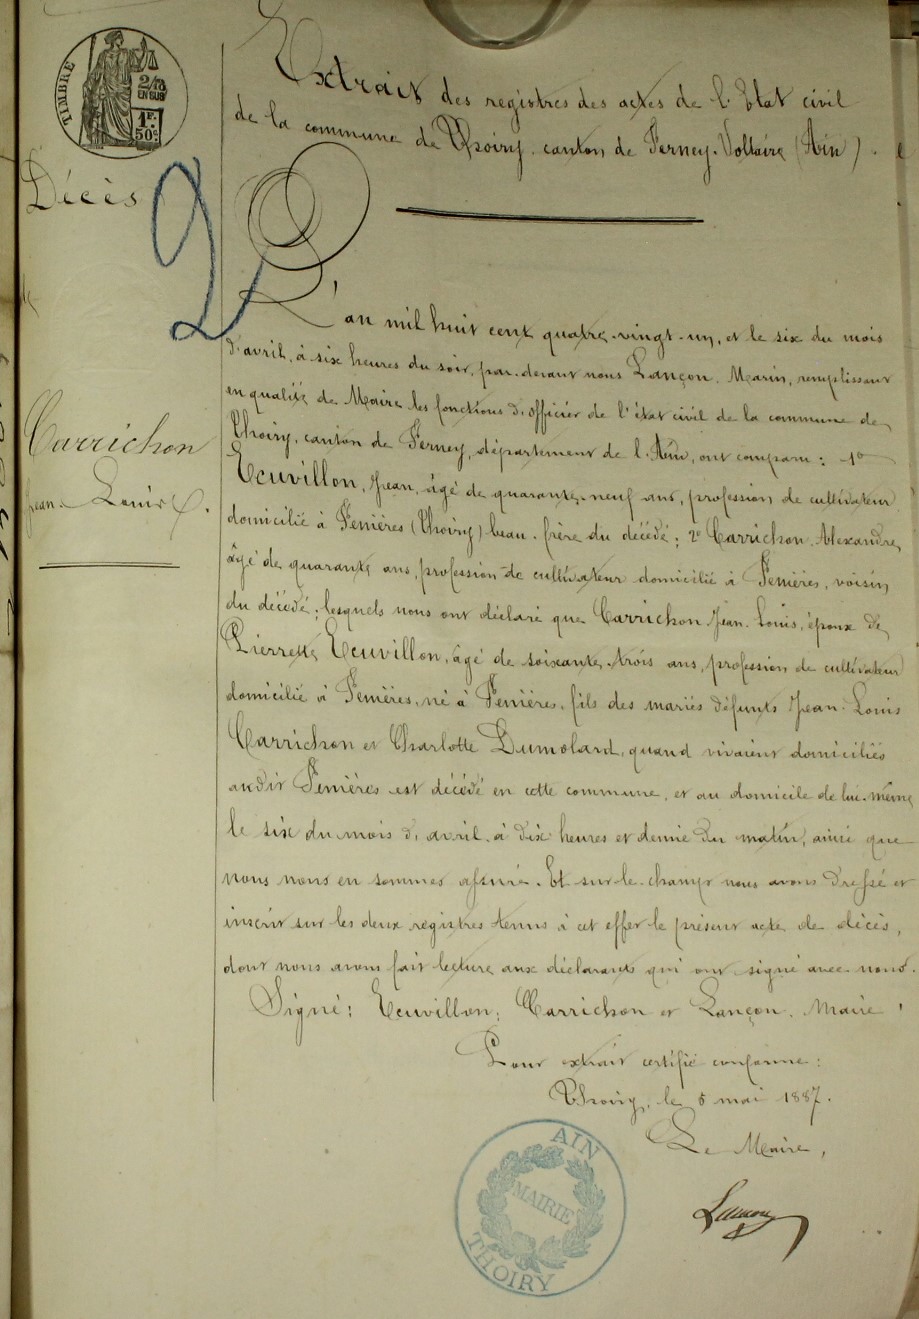 TIMBRE
2/10
EN SUS
1F.
50c
Extrait des registres des actes de l'Etat civil
de la commune de Thoiry, canton de Ferney-Voltaire (Ain).
Décès
2
L'an mil huit cent quatre-vingt-un, et le six du mois
d'avril, à six heures du soir, par-devant nous Lançon, Marin, remplissant
en qualité de Maire les fonctions d'officier de l'état civil de la commune de
Thoiry, canton de Ferney, département de l'Ain, ont comparu : 1º
Carrichon
Jean-Louis
Ecuvillon, Jean, âgé de quarante-neuf ans, profession de cultivateur
domicilié à Fenières (Thoiry) beau-frère du décédé ; 2º Carrichon Alexandre,
âgé de quarante ans, profession de cultivateur domicilié à Fenières, voisin
du décédé ; lesquels nous ont déclaré que Carrichon Jean-Louis, époux de
Pierrette Ecuvillon, âgé de soixante-trois ans, profession de cultivateur
domicilié à Fenières, né à Fenières, fils des mariés défunts Jean-Louis
Carrichon et Charlotte Dumoland, quand vivaient domiciliés
audit Fenières est décédé en cette commune, et au domicile de lui-même
le six du mois d'avril à dix heures et demie du matin, ainsi que
nous nous en sommes assuré. Et sur-le-champ nous avons dressé et
inscrit sur les deux registres tenus à cet effet le présent acte de décès,
dont nous avons fait lecture aux déclarants qui ont signé avec nous.
Signé : Ecuvillon ; Carrichon et Lançon, Maire.
Pour extrait certifié conforme :
Thoiry, le 5 mai 1887.
Le Maire,
Lançon
AIN
MAIRIE
THOIRY